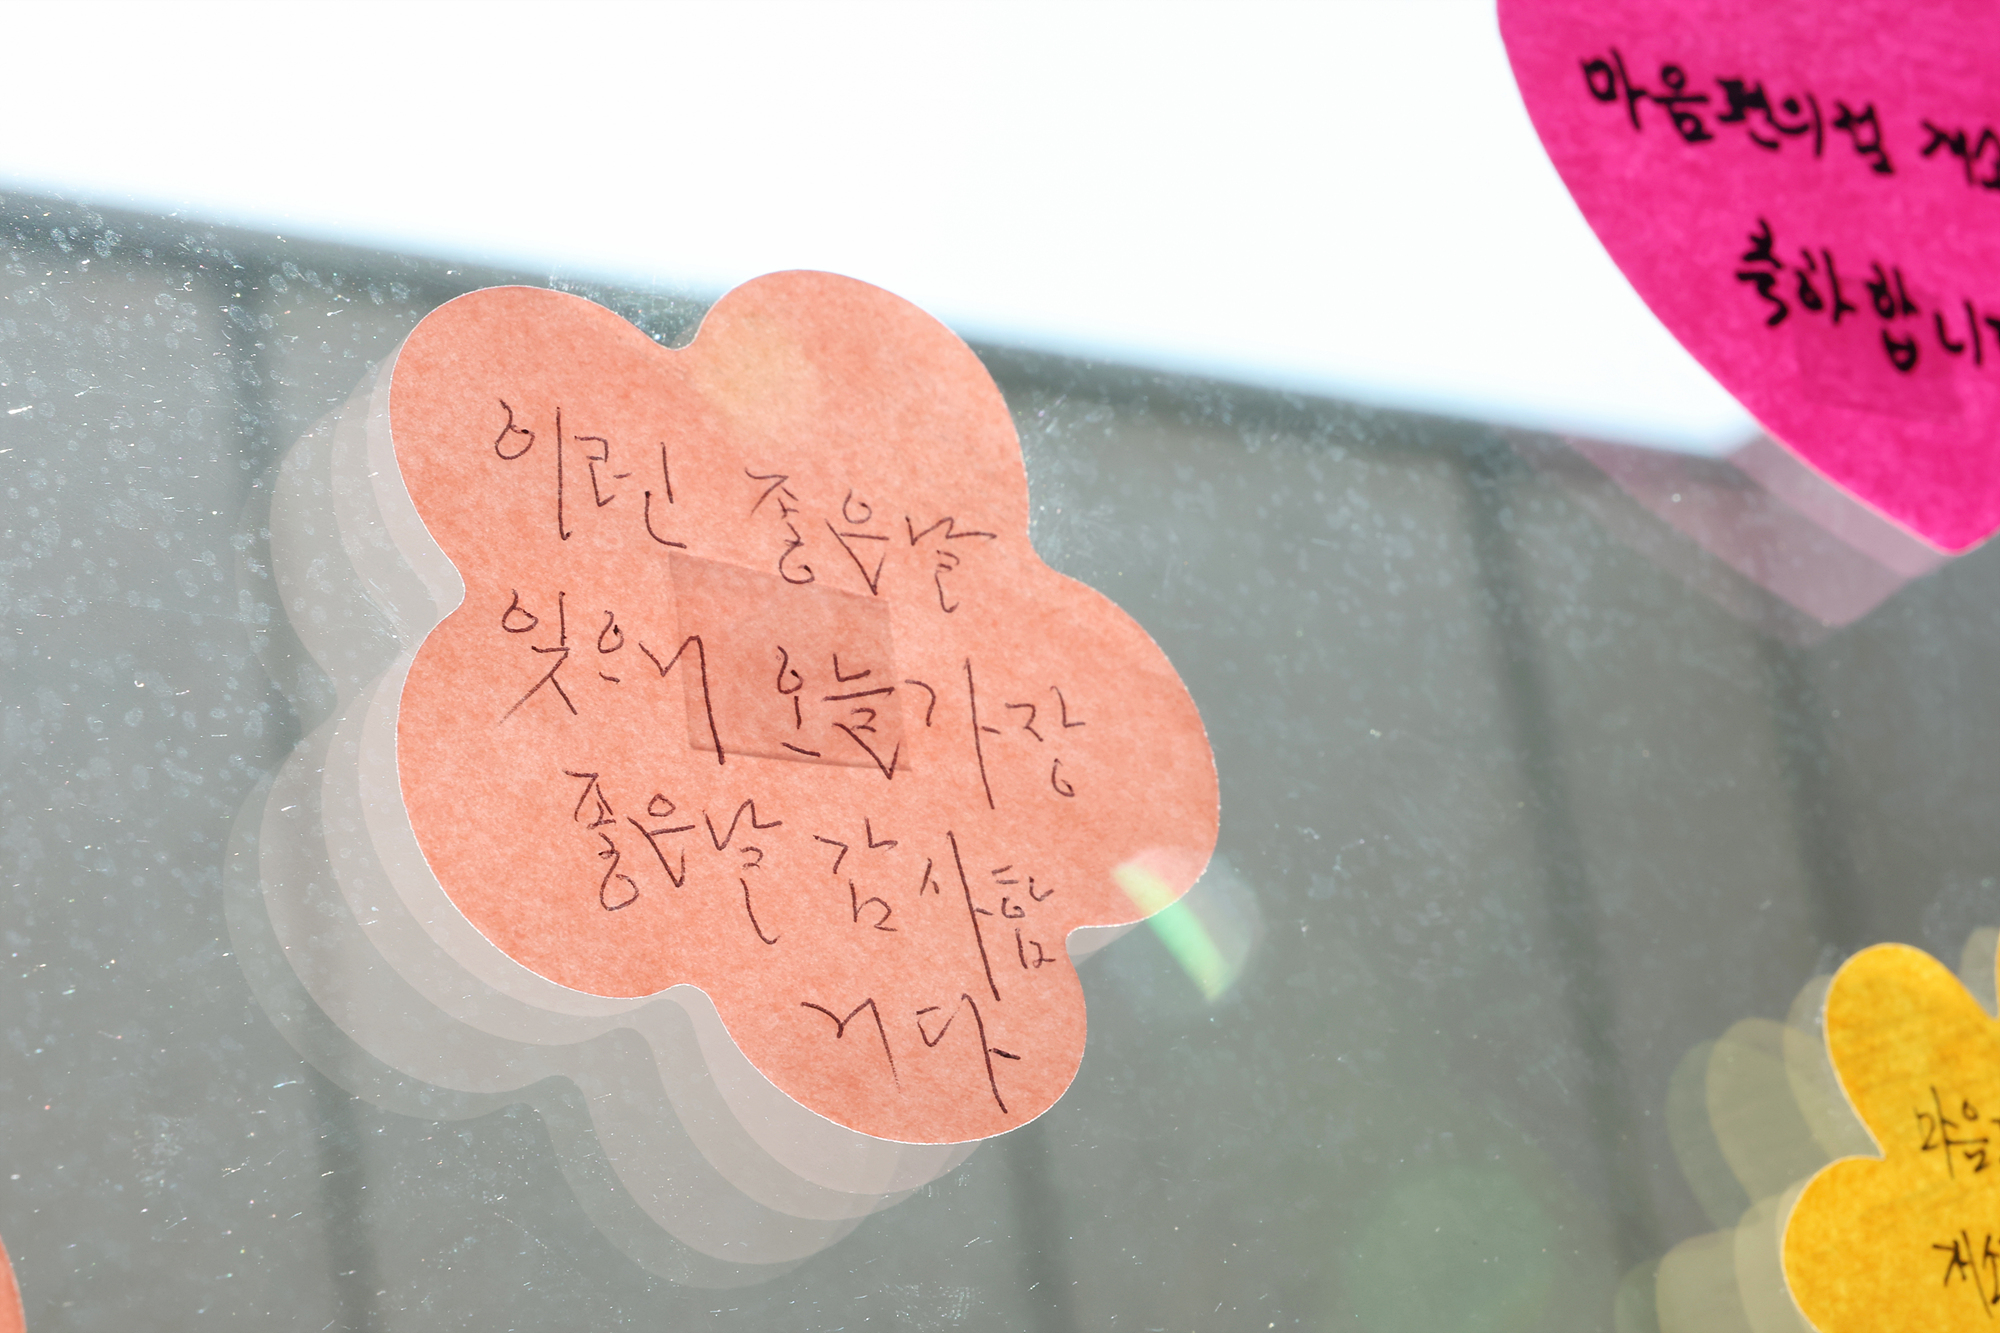 이런 좋은날
잊으니 오늘가장
좋은날 감사합
니다
마음편의점 개소
축하합니다
마음
개소